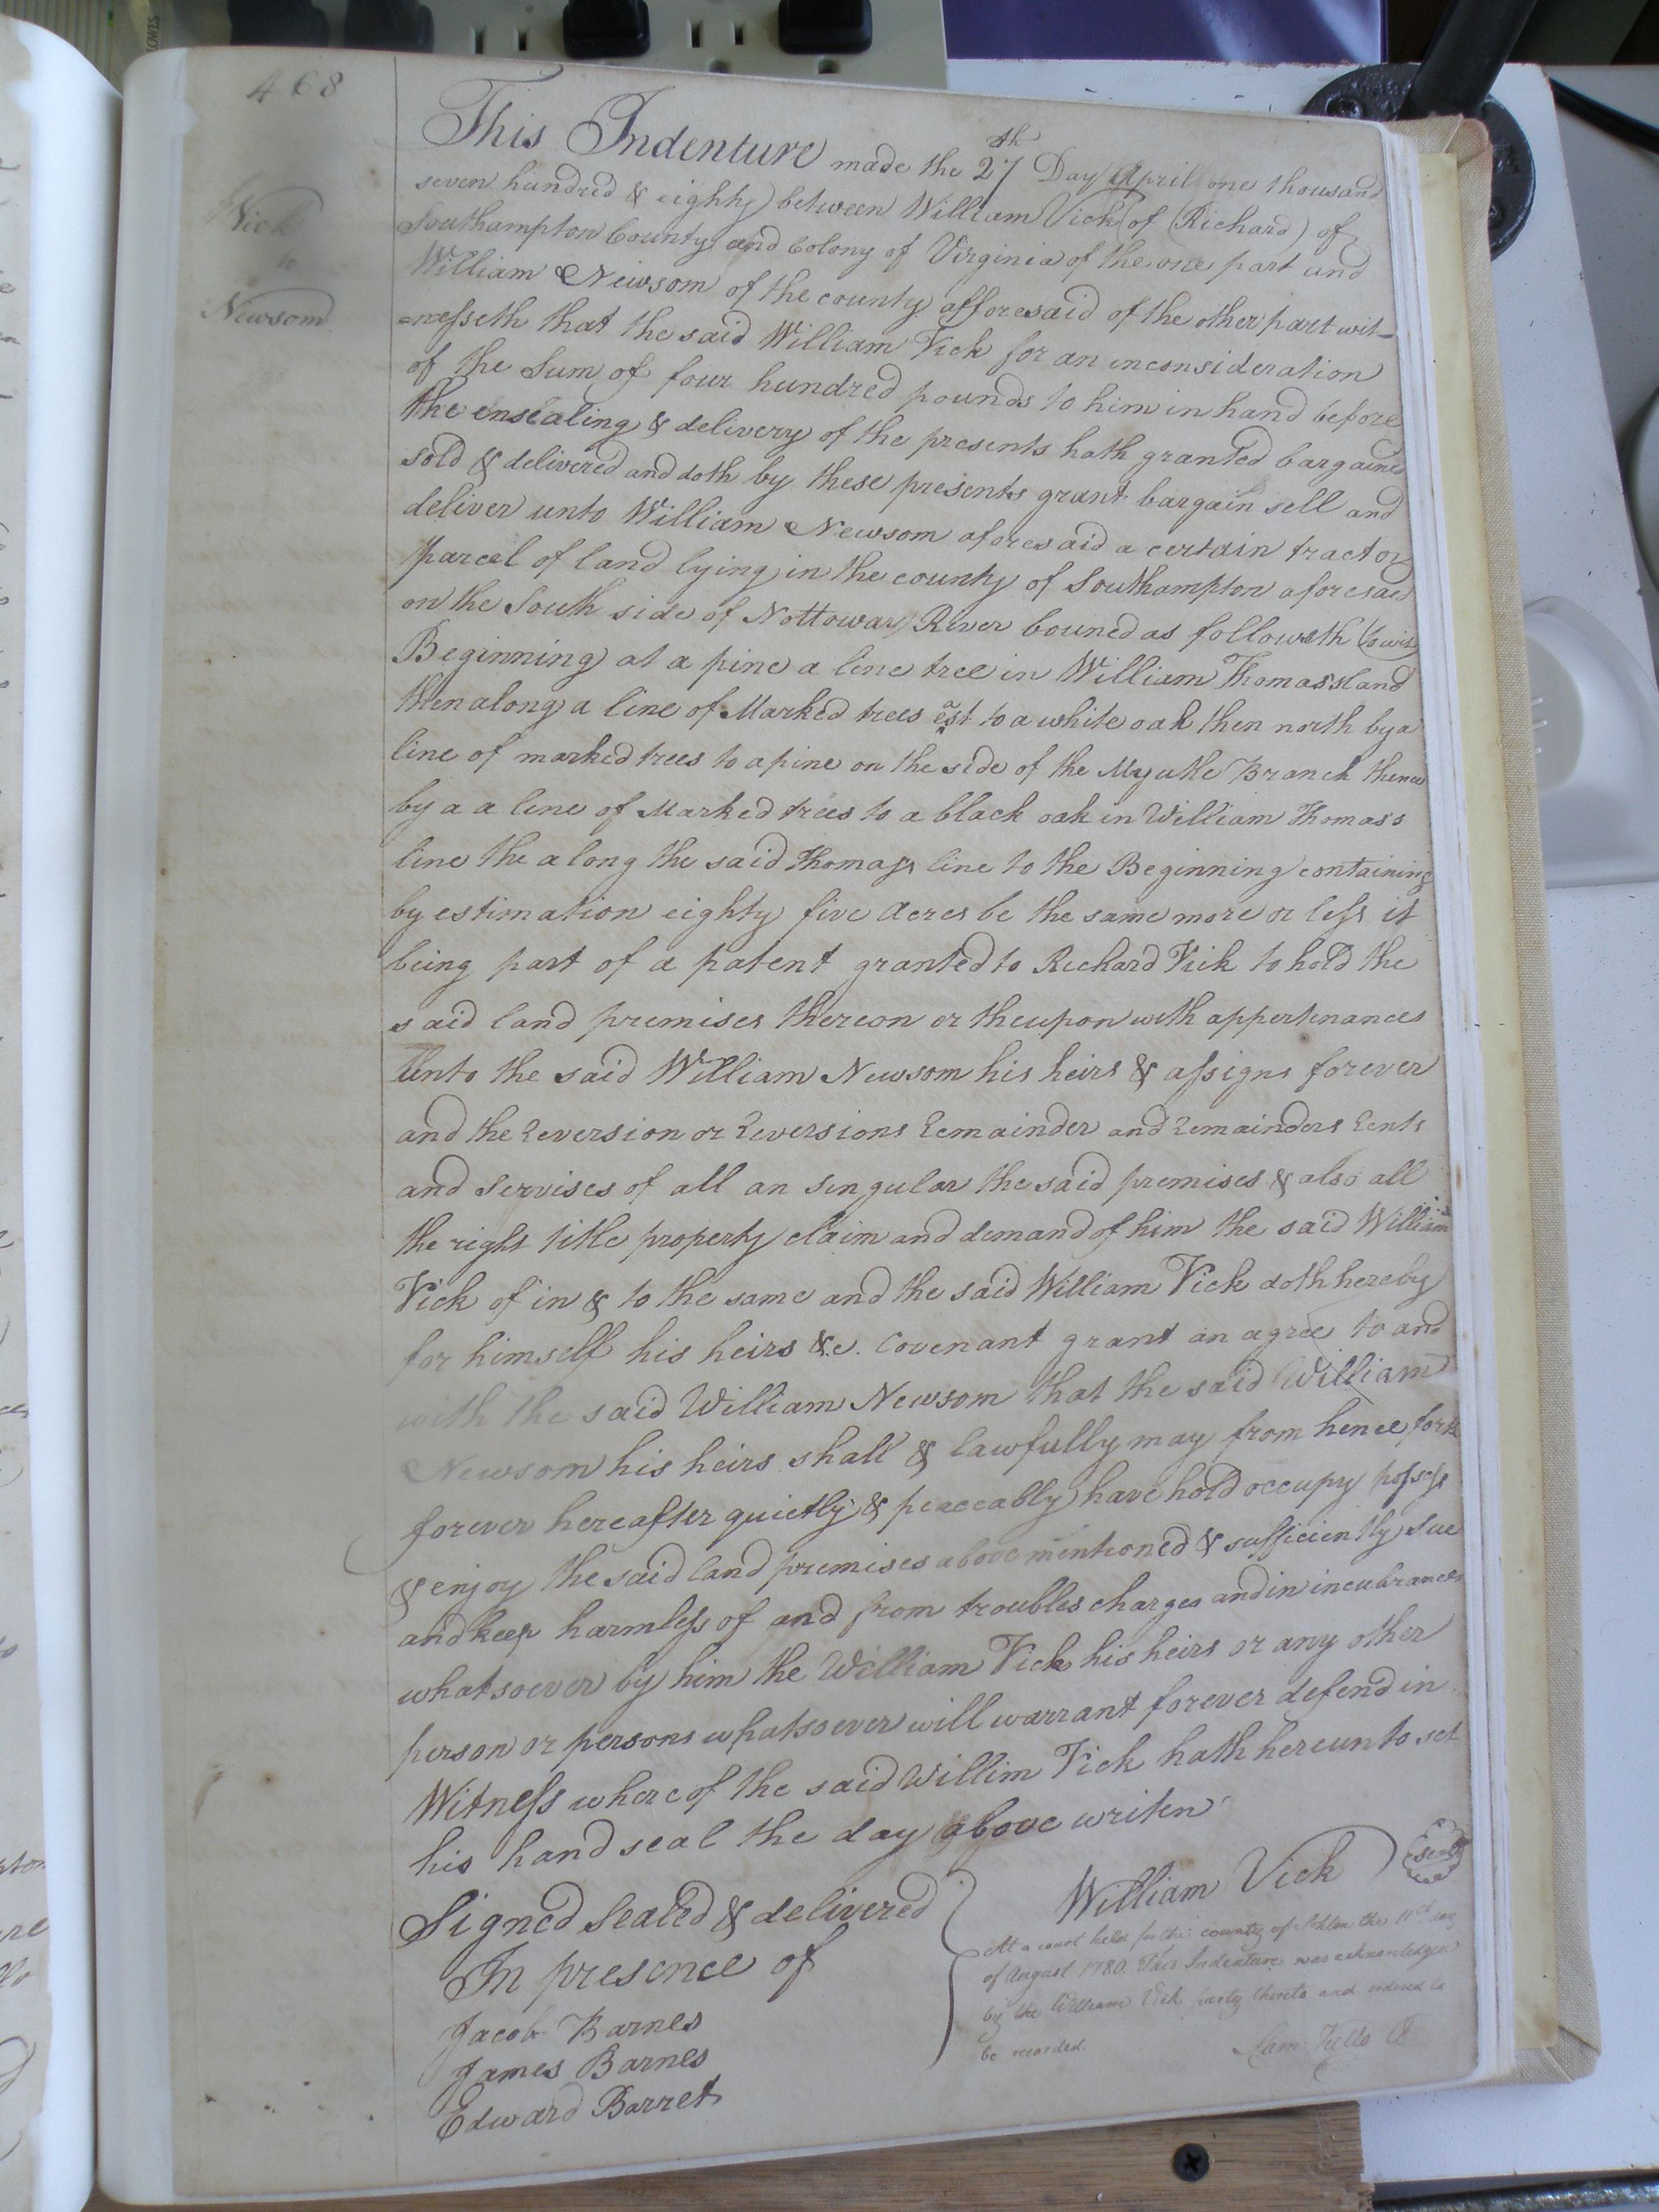 468
Vick
to
Newsom
This Indenture made the 27th Day April one thousand
seven hundred & eighty between William Vick of (Richard) of
Southampton County and Colony of Virginia of the one part and
William Newsom of the county afforesaid of the other part wit-
=nesseth that the said William Vick for an inconsideration
of the Sum of four hundred pounds to him in hand before
the ensealing & delivery of the presents hath granted bargained
sold & delivered and doth by these presents grant bargain sell and
deliver unto William Newsom aforesaid a certain tract or
parcel of land lying in the county of Southampton aforesaid
on the South side of Nottoway River bouned as followeth (to wit)
Beginning at a pine a line tree in William Thomass land
then along a line of Marked trees est to a white oak then north by a
line of marked trees to a pine on the side of the Branch thence
by a a line of Marked trees to a black oak in William Thomass
line the along the said Thomass line to the Beginning containing
by estimation eighty five Acres be the same more or less it
being part of a patent granted to Richard Vick to hold the
said land premises thereon or theupon with appertenances
Unto the said William Newsom his heirs & assigns forever
and the reversion or reversions remainder and remainders rents
and servises of all an singular the said premises & also all
the right title property claim and demand of him the said William
Vick of in & to the same and the said William Vick doth hereby
for himself his heirs &c. Covenant grant an agree to and
with the said William Newsom that the said William
Newsom his heirs shall & lawfully may from hence forth
forever hereafter quietly & peaceably have hold occupy possess
& enjoy the said land premises above mentioned & sufficiently sue
and keep harmless of and from troubles charges and in incubrances
whatsoever by him the William Vick his heirs or any other
person or persons whatsoever will warrant forever defend in
Witness whereof the said Willim Vick hath hereunto set
his hand seal the day above writen
William Vick
Seal
Signed Sealed & delivered
In presence of
Jacob Barnes
James Barnes
Edward Barret
At a court held for the county of Sohton the 11th day
of August 1780. This Indenture was acknowledged
by the William Vick party thereto and ordered to
be recorded.